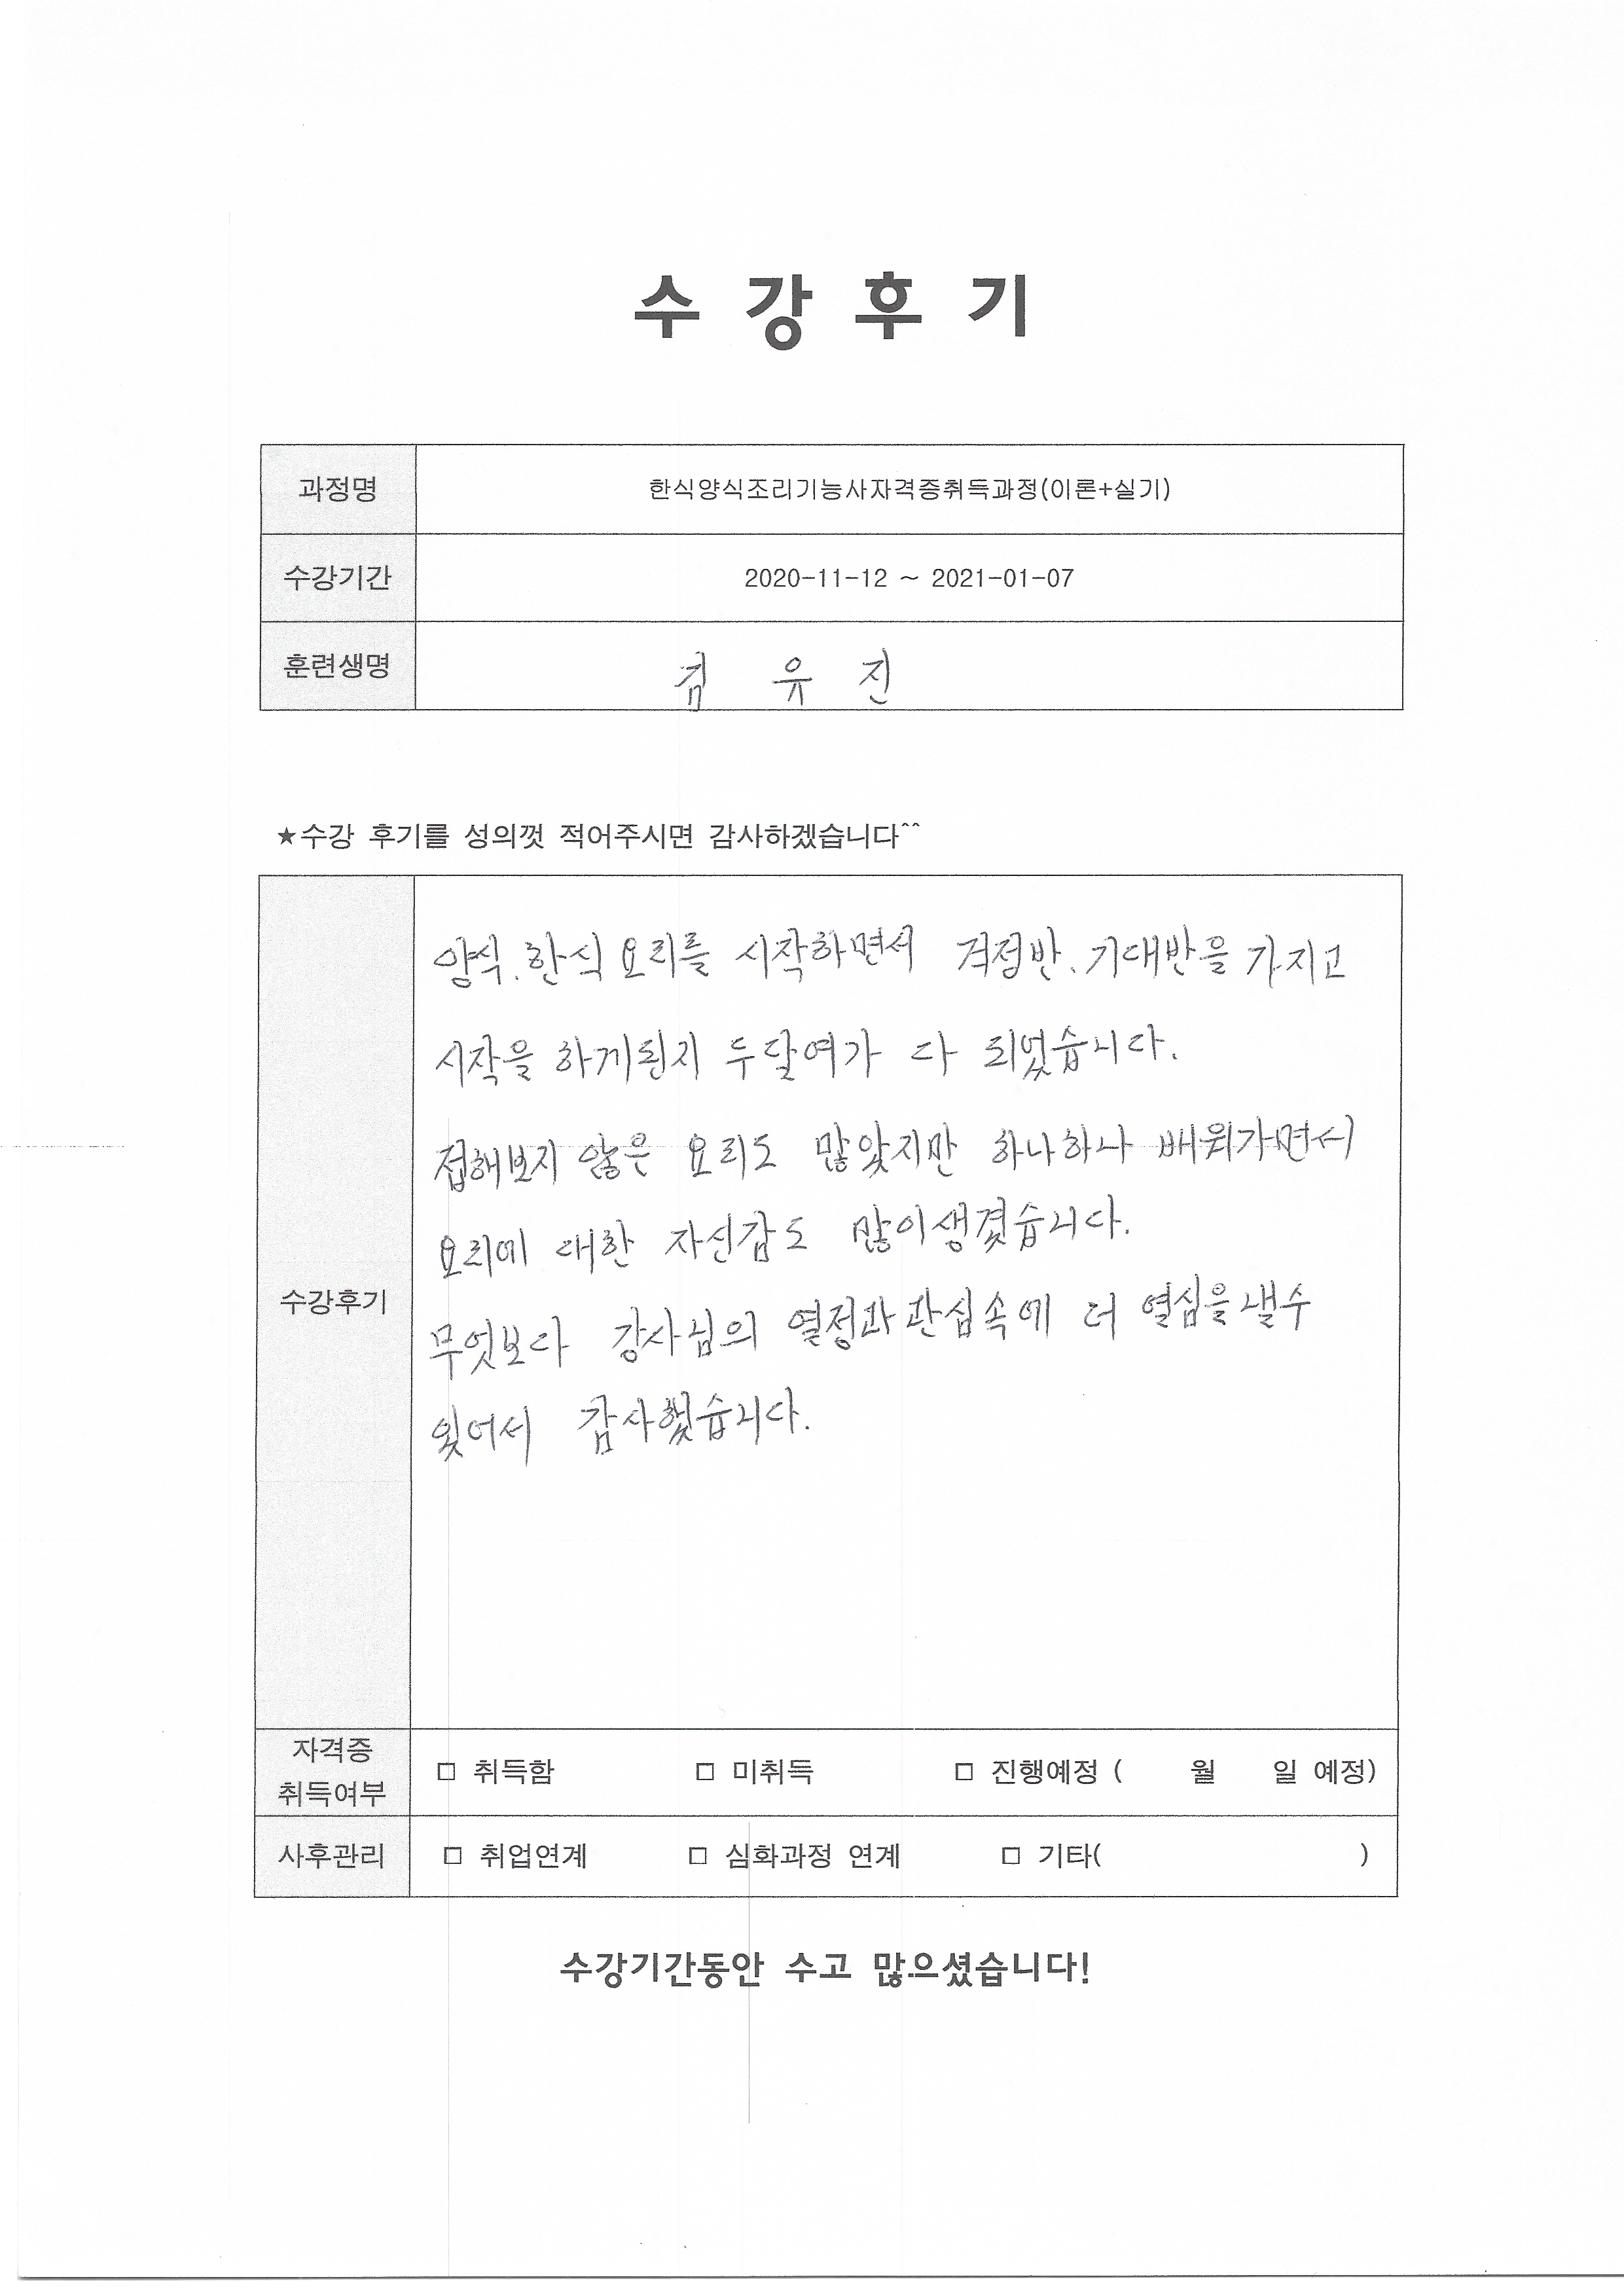 수 강 후 기
과정명 한식양식조리기능사자격증취득과정(이론+실기)
수강기간 2020-11-12 ~ 2021-01-07
훈련생명 김 유 진
★수강 후기를 성의껏 적어주시면 감사하겠습니다^^
양식.한식 요리를 시작하면서 걱정반.기대반을 가지고
시작을 하게된지 두달여가 다 되었습니다.
접해보지 않은 요리도 많았지만 하나하나 배워가면서
요리에 대한 자신감도 많이생겼습니다.
수강후기
무엇보다 강사님의 열정과 관심속에 더 열심을낼수
있어서 감사했습니다.
자격증
취득여부
□ 취득함 □ 미취득 □ 진행예정 ( 월 일 예정)
사후관리 □ 취업연계 □ 심화과정 연계 □ 기타( )
수강기간동안 수고 많으셨습니다!